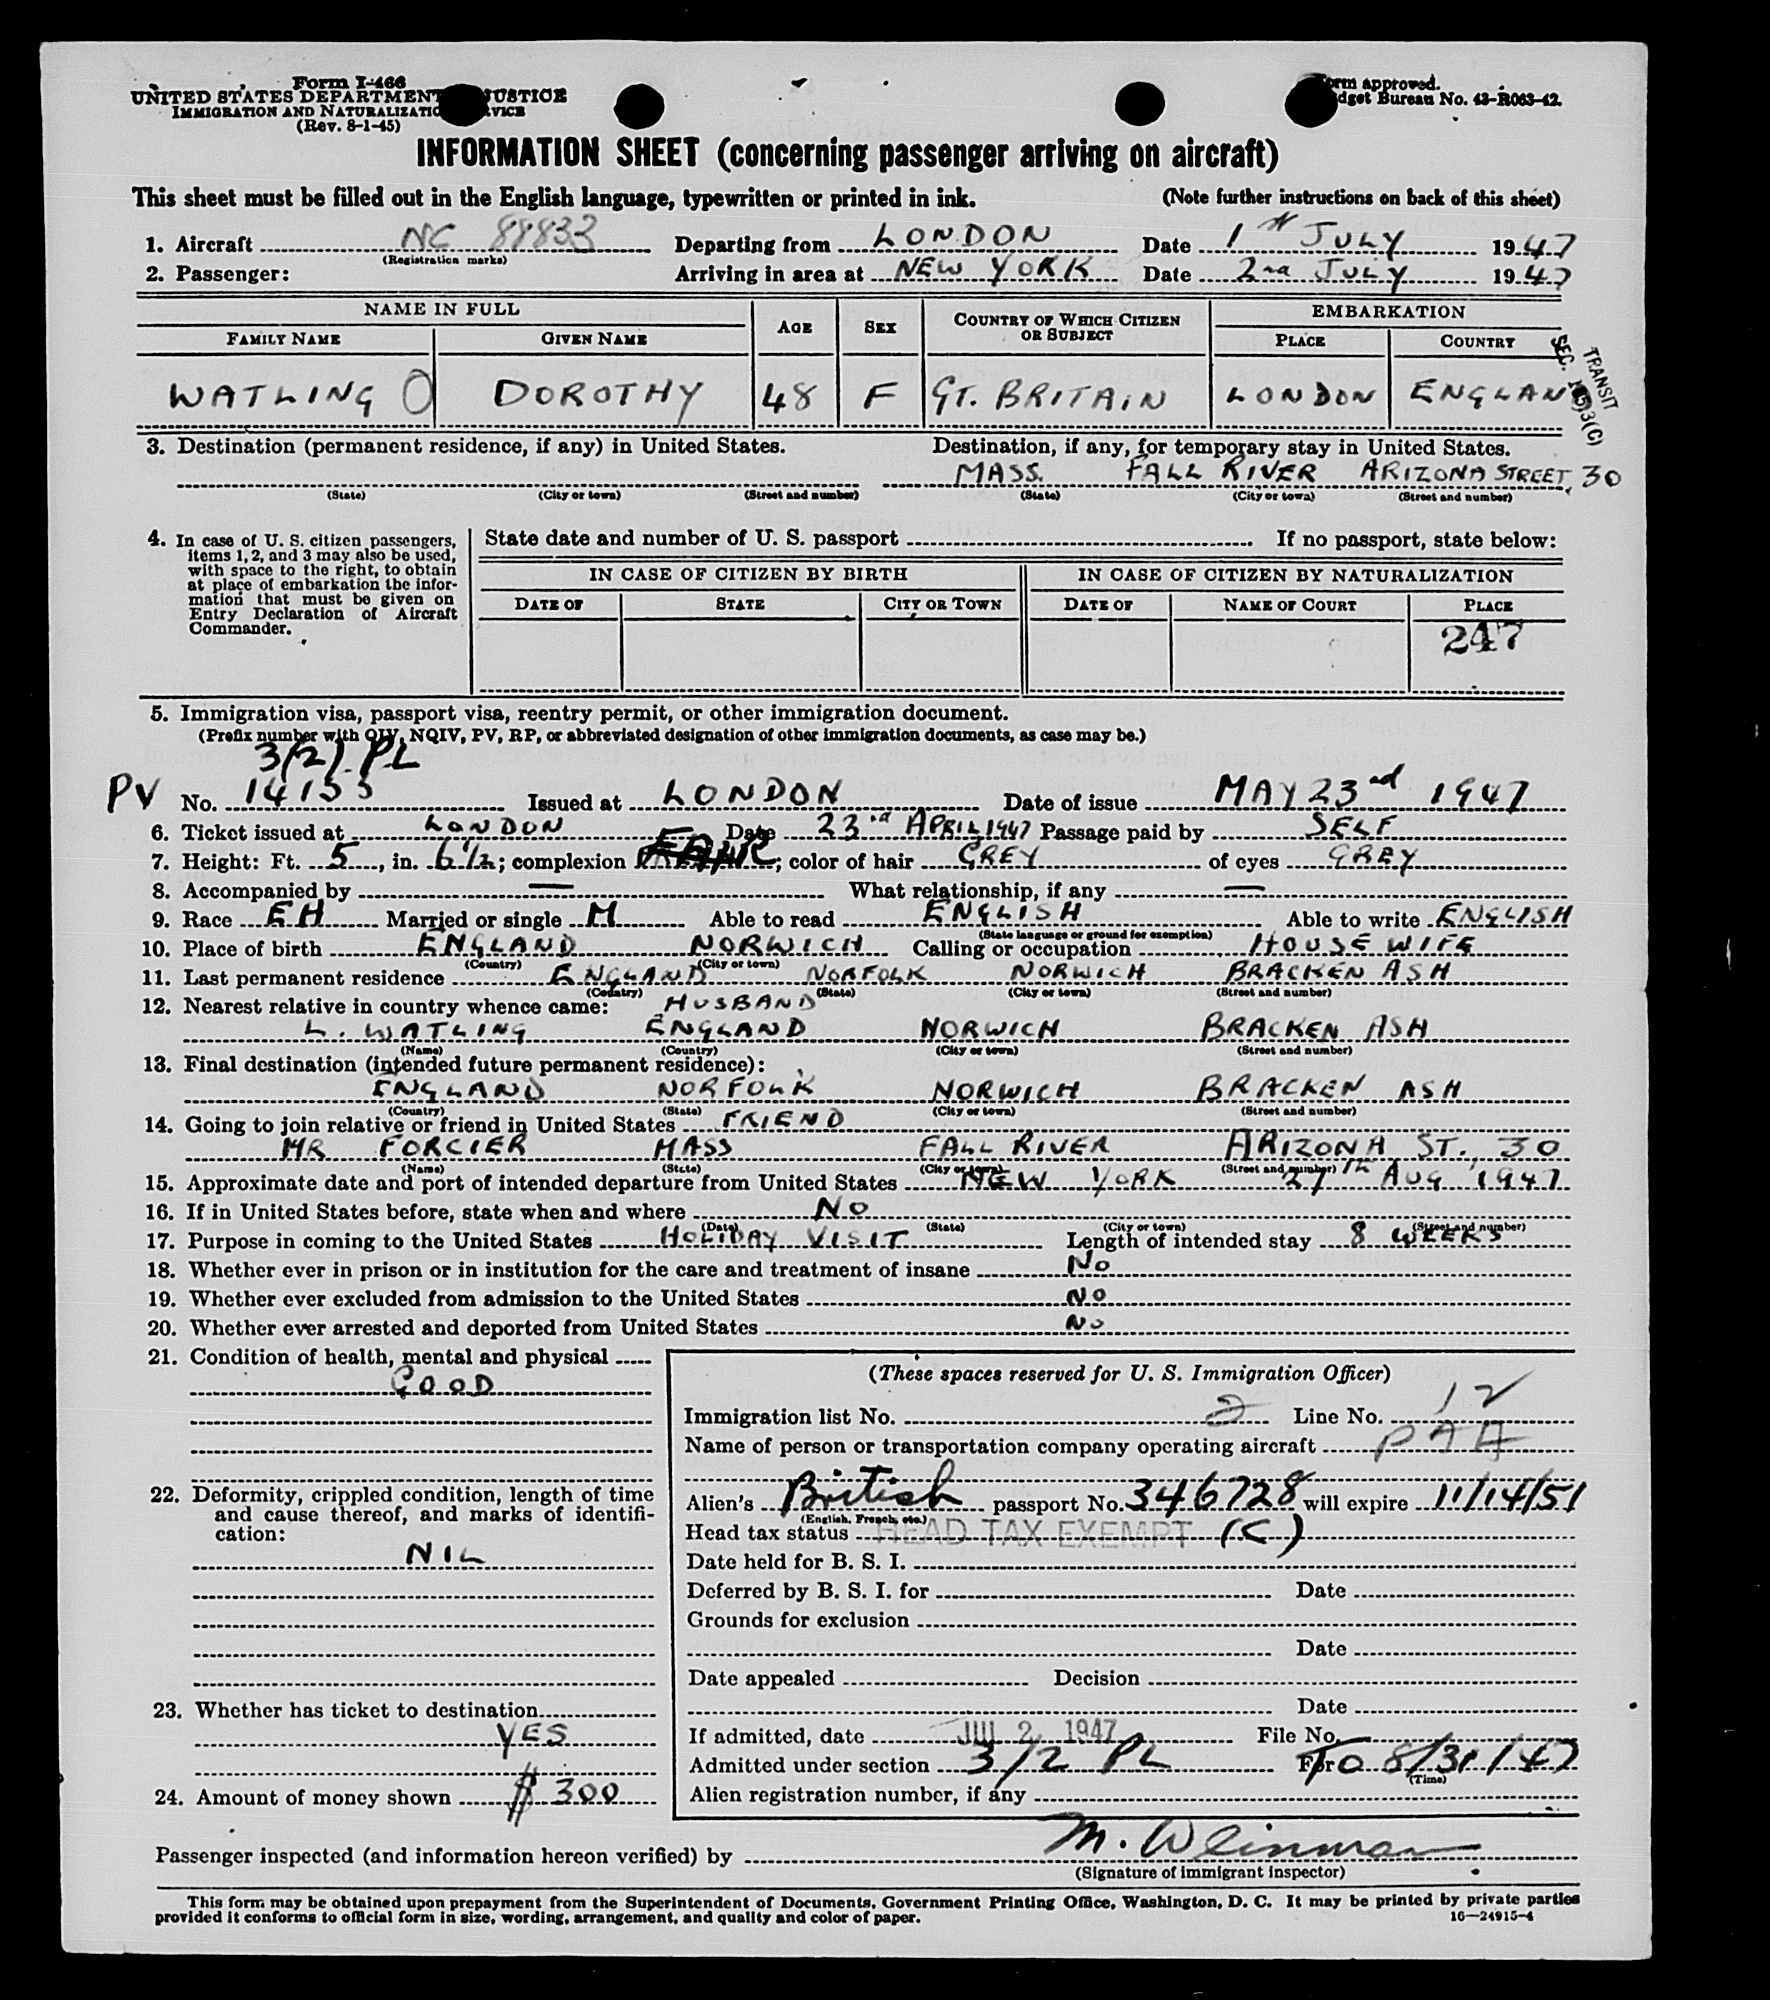 Form I-466
UNITED STATES DEPARTMENT JUSTICE
IMMIGRATION AND NATURALIZATION SERVICE
(Rev. 8-1-45)
Form approved.
Budget Bureau No. 43-R063-42.
INFORMATION SHEET (concerning passenger arriving on aircraft)
This sheet must be filled out in the English language, typewritten or printed in ink. (Note further instructions on back of this sheet)
1. Aircraft NC 88833 Departing from LONDON Date 1st JULY 1947
(Registration marks)
2. Passenger: Arriving in area at NEW YORK Date 2nd JULY 1947
NAME IN FULL AGE SEX COUNTRY OF WHICH CITIZEN OR SUBJECT EMBARKATION
FAMILY NAME GIVEN NAME PLACE COUNTRY
WATLING DOROTHY 48 F GT. BRITAIN LONDON ENGLAND
TRANSIT
SEC. 3(C)
3. Destination (permanent residence, if any) in United States. Destination, if any, for temporary stay in United States.
MASS. FALL RIVER ARIZONA STREET, 30
(State) (City or town) (Street and number) (State) (City or town) (Street and number)
4. In case of U. S. citizen passengers, items 1, 2, and 3 may also be used, with space to the right, to obtain at place of embarkation the information that must be given on Entry Declaration of Aircraft Commander.
State date and number of U. S. passport If no passport, state below:
IN CASE OF CITIZEN BY BIRTH IN CASE OF CITIZEN BY NATURALIZATION
DATE OF STATE CITY OR TOWN DATE OF NAME OF COURT PLACE
247
5. Immigration visa, passport visa, reentry permit, or other immigration document.
(Prefix number with QIV, NQIV, PV, RP, or abbreviated designation of other immigration documents, as case may be.)
3(2) PL
PV No. 14153 Issued at LONDON Date of issue MAY 23rd 1947
6. Ticket issued at LONDON Date 23rd APRIL 1947 Passage paid by SELF
7. Height: Ft. 5, in. 6 1/2; complexion FAIR; color of hair GREY of eyes GREY
8. Accompanied by — What relationship, if any —
9. Race EH Married or single M Able to read ENGLISH Able to write ENGLISH
(State language or ground for exemption)
10. Place of birth ENGLAND NORWICH Calling or occupation HOUSEWIFE
(Country) (City or town)
11. Last permanent residence ENGLAND NORFOLK NORWICH BRACKEN ASH
(Country) (State) (City or town) (Street and number)
12. Nearest relative in country whence came: HUSBAND
L. WATLING ENGLAND NORWICH BRACKEN ASH
(Name) (Country) (City or town) (Street and number)
13. Final destination (intended future permanent residence):
ENGLAND NORFOLK NORWICH BRACKEN ASH
(Country) (State) (City or town) (Street and number)
14. Going to join relative or friend in United States FRIEND
MR FORCIER MASS FALL RIVER ARIZONA ST., 30
(Name) (State) (City or town) (Street and number)
15. Approximate date and port of intended departure from United States NEW YORK 27th AUG 1947
16. If in United States before, state when and where NO
(Date) (State) (City or town) (Street and number)
17. Purpose in coming to the United States HOLIDAY VISIT Length of intended stay 8 WEEKS
18. Whether ever in prison or in institution for the care and treatment of insane NO
19. Whether ever excluded from admission to the United States NO
20. Whether ever arrested and deported from United States NO
21. Condition of health, mental and physical
GOOD
22. Deformity, crippled condition, length of time and cause thereof, and marks of identification:
NIL
23. Whether has ticket to destination
YES
24. Amount of money shown $ 300
(These spaces reserved for U. S. Immigration Officer)
Immigration list No. 2 Line No. 12
Name of person or transportation company operating aircraft PAA
Alien's British passport No. 346728 will expire 11/14/51
(English, French, etc.)
Head tax status HEAD TAX EXEMPT (C)
Date held for B. S. I.
Deferred by B. S. I. for Date
Grounds for exclusion
Date
Date appealed Decision
Date
If admitted, date JUL 2 1947 File No.
Admitted under section 3/2 PL For TO 8/31/47
(Time)
Alien registration number, if any
Passenger inspected (and information hereon verified) by M. Weinman
(Signature of immigrant inspector)
This form may be obtained upon prepayment from the Superintendent of Documents, Government Printing Office, Washington, D. C. It may be printed by private parties
provided it conforms to official form in size, wording, arrangement, and quality and color of paper. 16—24915-4